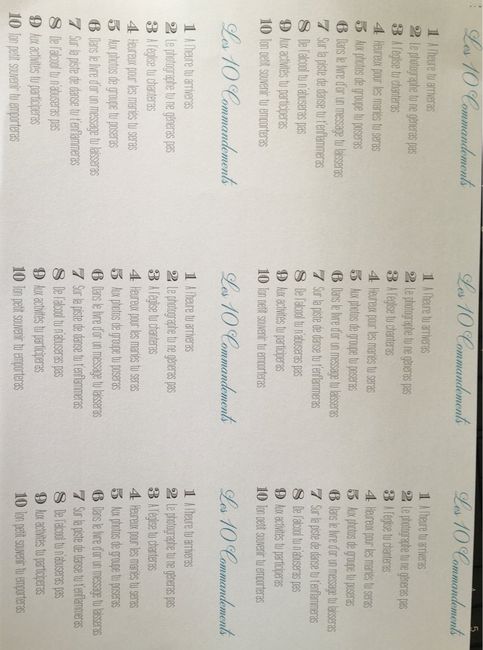 Les 10 Commandements
1 A l'heure tu arriveras
2 Le photographe tu ne gêneras pas
3 A l'église tu chanteras
4 Heureux pour les mariés tu seras
5 Aux photos de groupe tu poseras
6 Dans le livre d'or un message tu laisseras
7 Sur la piste de danse tu t'enflammeras
8 De l'alcool tu n'abuseras pas
9 Aux activités tu participeras
10 Ton petit souvenir tu emporteras
Les 10 Commandements
1 A l'heure tu arriveras
2 Le photographe tu ne gêneras pas
3 A l'église tu chanteras
4 Heureux pour les mariés tu seras
5 Aux photos de groupe tu poseras
6 Dans le livre d'or un message tu laisseras
7 Sur la piste de danse tu t'enflammeras
8 De l'alcool tu n'abuseras pas
9 Aux activités tu participeras
10 Ton petit souvenir tu emporteras
Les 10 Commandements
1 A l'heure tu arriveras
2 Le photographe tu ne gêneras pas
3 A l'église tu chanteras
4 Heureux pour les mariés tu seras
5 Aux photos de groupe tu poseras
6 Dans le livre d'or un message tu laisseras
7 Sur la piste de danse tu t'enflammeras
8 De l'alcool tu n'abuseras pas
9 Aux activités tu participeras
10 Ton petit souvenir tu emporteras
Les 10 Commandements
1 A l'heure tu arriveras
2 Le photographe tu ne gêneras pas
3 A l'église tu chanteras
4 Heureux pour les mariés tu seras
5 Aux photos de groupe tu poseras
6 Dans le livre d'or un message tu laisseras
7 Sur la piste de danse tu t'enflammeras
8 De l'alcool tu n'abuseras pas
9 Aux activités tu participeras
10 Ton petit souvenir tu emporteras
Les 10 Commandements
1 A l'heure tu arriveras
2 Le photographe tu ne gêneras pas
3 A l'église tu chanteras
4 Heureux pour les mariés tu seras
5 Aux photos de groupe tu poseras
6 Dans le livre d'or un message tu laisseras
7 Sur la piste de danse tu t'enflammeras
8 De l'alcool tu n'abuseras pas
9 Aux activités tu participeras
10 Ton petit souvenir tu emporteras
Les 10 Commandements
1 A l'heure tu arriveras
2 Le photographe tu ne gêneras pas
3 A l'église tu chanteras
4 Heureux pour les mariés tu seras
5 Aux photos de groupe tu poseras
6 Dans le livre d'or un message tu laisseras
7 Sur la piste de danse tu t'enflammeras
8 De l'alcool tu n'abuseras pas
9 Aux activités tu participeras
10 Ton petit souvenir tu emporteras